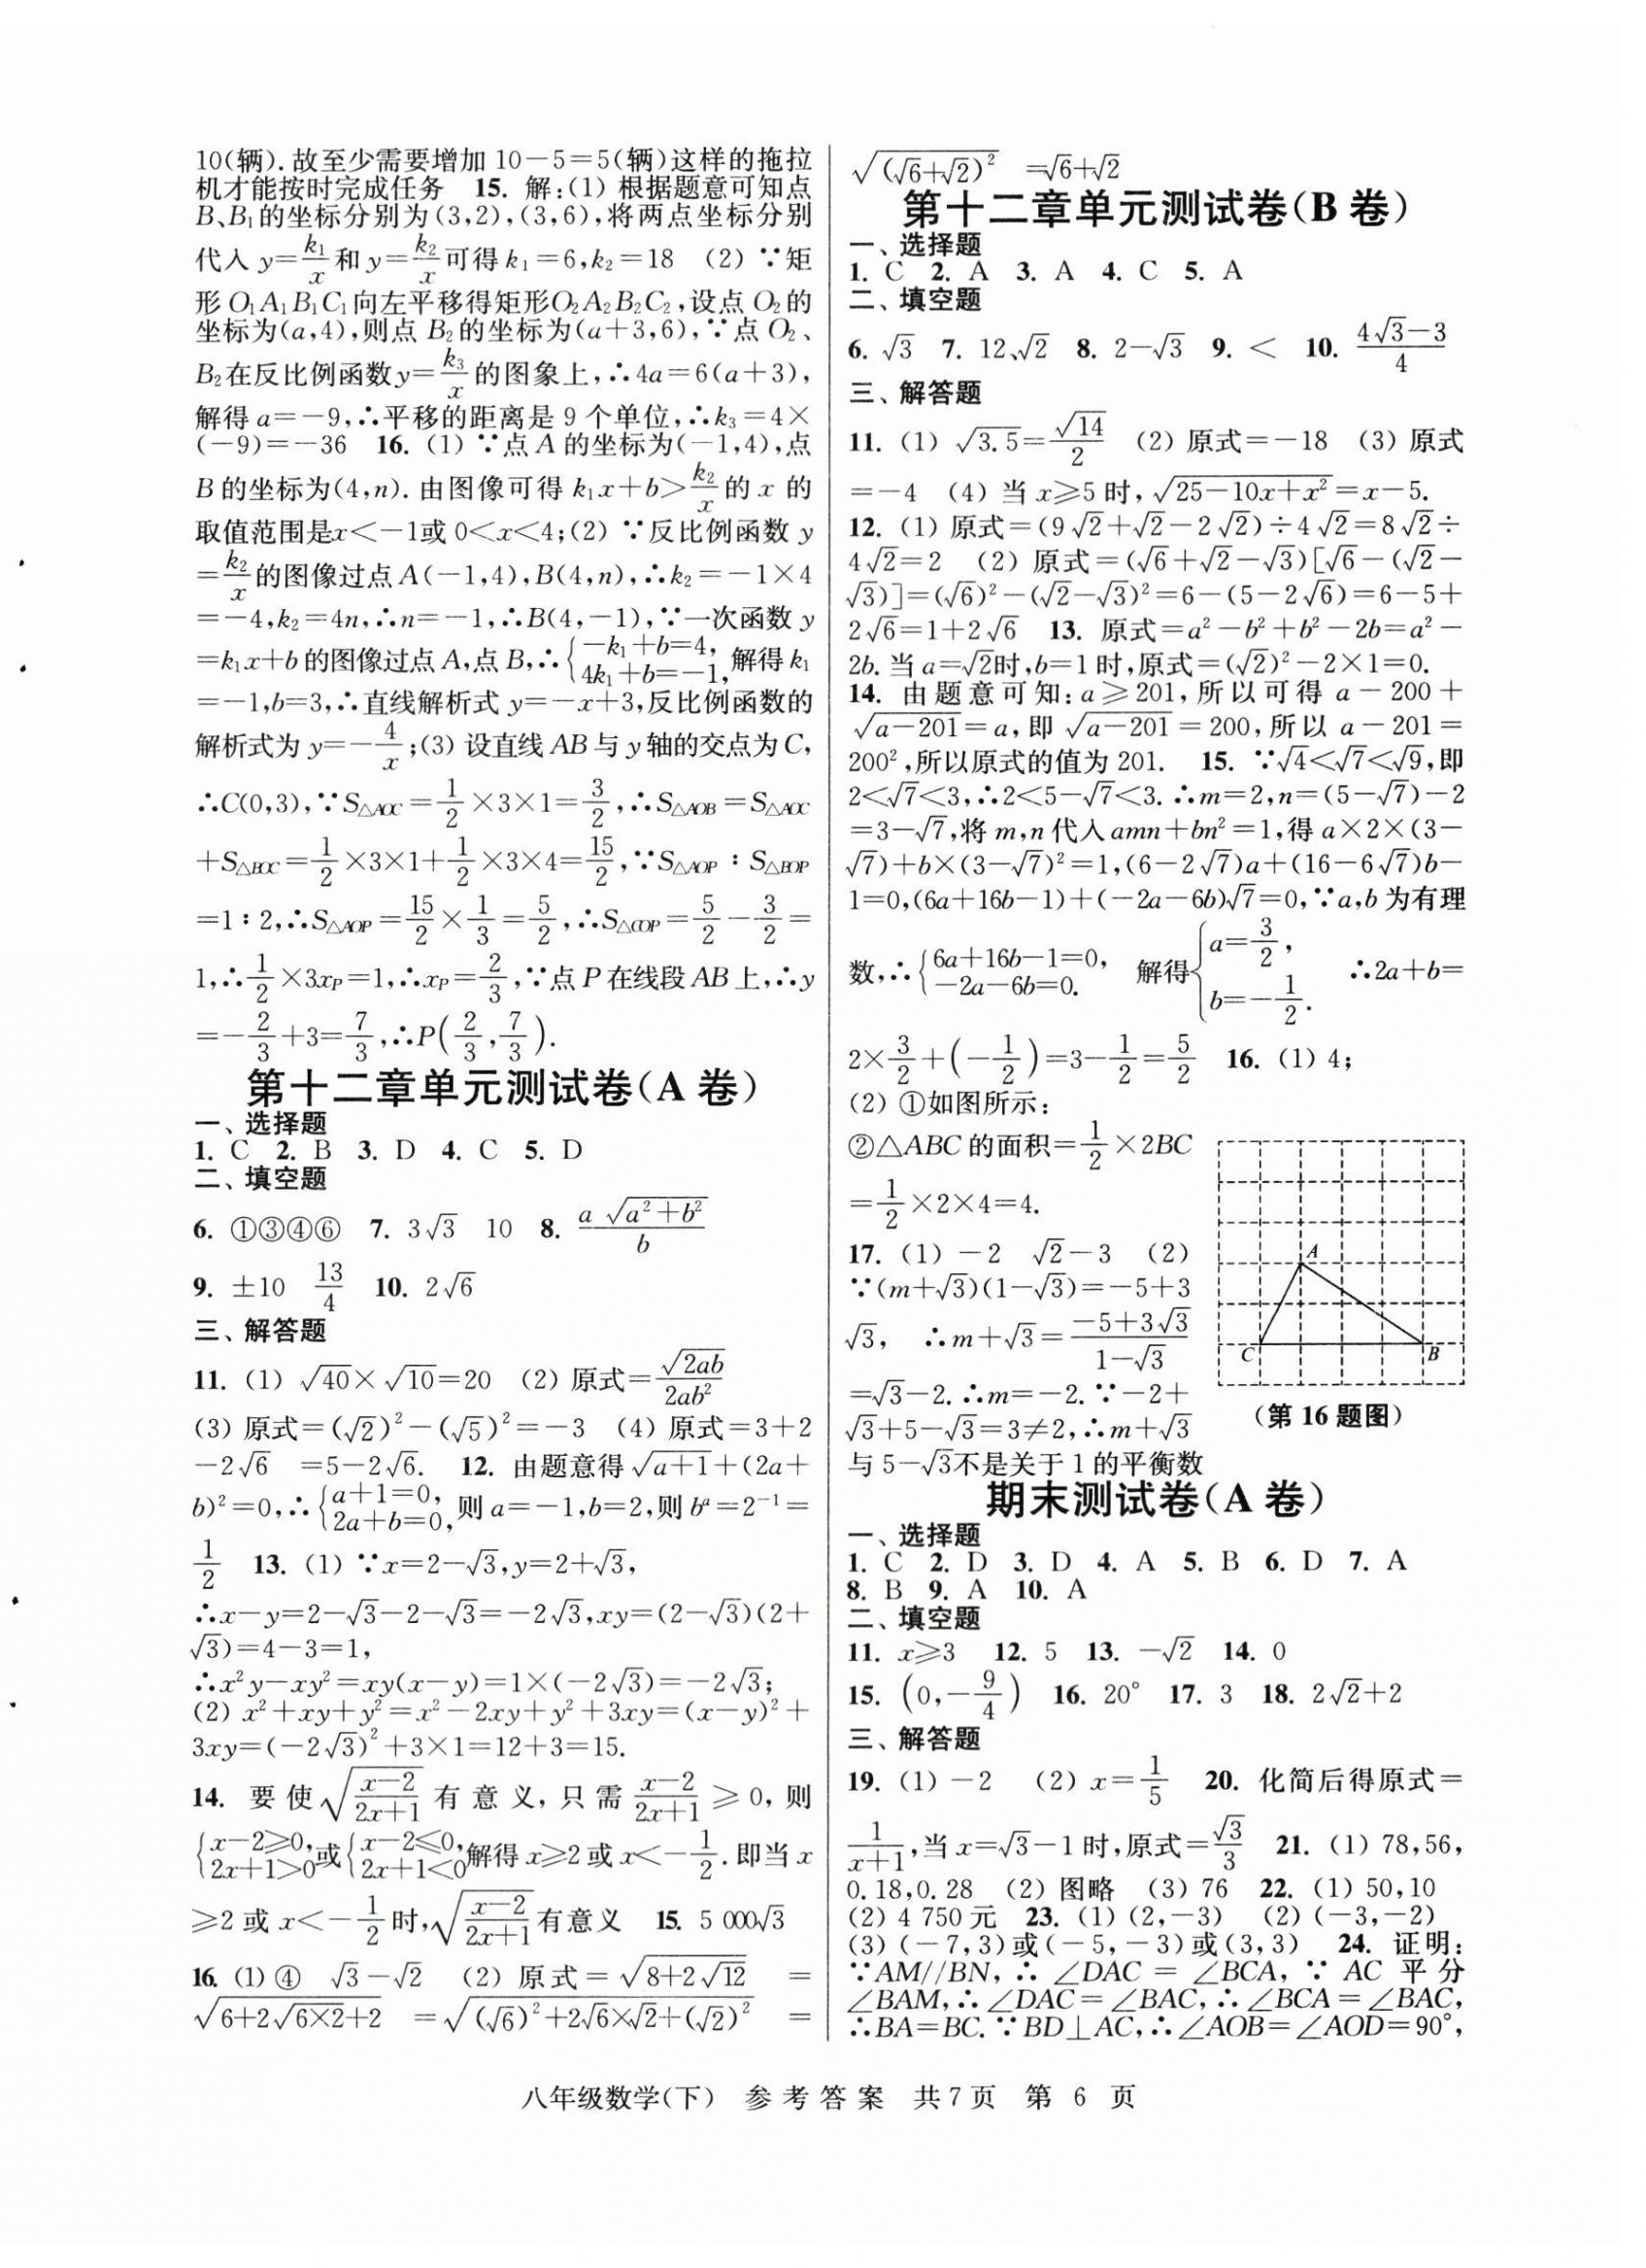 10(辆).故至少需要增加 10－5＝5(辆)这样的拖拉
机才能按时完成任务　15. 解:(1) 根据题意可知点
B、B₁的坐标分别为(3,2),(3,6),将两点坐标分别
代入 y＝k₁/x 和 y＝k₂/x 可得 k₁＝6,k₂＝18　(2) ∵矩
形 O₁A₁B₁C₁向左平移得矩形O₂A₂B₂C₂,设点 O₂的
坐标为(a,4),则点 B₂的坐标为(a＋3,6),∵点 O₂、
B₂在反比例函数y＝k₃/x 的图象上,∴4a＝6(a＋3),
解得 a＝－9,∴平移的距离是 9 个单位,∴k₃＝4×
(－9)＝－36　16. (1) ∵点 A 的坐标为(－1,4),点
B 的坐标为(4,n). 由图像可得 k₁x＋b＞k₂/x 的 x 的
取值范围是x＜－1或 0＜x＜4;(2) ∵反比例函数 y
＝k₂/x 的图像过点 A(－1,4),B(4,n),∴k₂＝－1×4
＝－4,k₂＝4n,∴n＝－1,∴B(4,－1),∵一次函数 y
＝k₁x＋b 的图像过点 A,点 B,∴{－k₁＋b＝4, 4k₁＋b＝－1, 解得 k₁
＝－1,b＝3,∴直线解析式 y＝－x＋3,反比例函数的
解析式为 y＝－4/x;(3) 设直线 AB 与 y 轴的交点为 C,
∴C(0,3),∵S△AOC＝1/2×3×1＝3/2,∴S△AOB＝S△AOC
＋S△BOC＝1/2×3×1＋1/2×3×4＝15/2,∵S△AOP∶S△BOP
＝1∶2,∴S△AOP＝15/2×1/3＝5/2,∴S△COP＝5/2－3/2＝
1,∴1/2×3xP＝1,∴xP＝2/3,∵点 P 在线段 AB 上,∴y
＝－2/3＋3＝7/3,∴P(2/3,7/3).
第十二章单元测试卷(A 卷)
一、选择题
1. C　2. B　3. D　4. C　5. D
二、填空题
6. ①③④⑥　7. 3√3　10　8. a√(a²＋b²)/b
9. ±10　13/4　10. 2√6
三、解答题
11. (1) √40×√10＝20　(2) 原式＝√(2ab)/2ab²
(3) 原式＝(√2)²－(√5)²＝－3　(4) 原式＝3＋2
－2√6　＝5－2√6.　12. 由题意得√(a＋1)＋(2a＋
b)²＝0,∴{a＋1＝0, 2a＋b＝0, 则 a＝－1,b＝2,则 bᵃ＝2⁻¹＝
1/2　13. (1) ∵x＝2－√3,y＝2＋√3,
∴x－y＝2－√3－2－√3＝－2√3,xy＝(2－√3)(2＋
√3)＝4－3＝1,
∴x²y－xy²＝xy(x－y)＝1×(－2√3)＝－2√3;
(2) x²＋xy＋y²＝x²－2xy＋y²＋3xy＝(x－y)²＋
3xy＝(－2√3)²＋3×1＝12＋3＝15.
14. 要使√((x－2)/(2x＋1)) 有意义,只需 (x－2)/(2x＋1) ≥0,则
{x－2≥0, 2x＋1＞0或{x－2≤0, 2x＋1＜0解得 x≥2 或 x＜－1/2.即当 x
≥2 或 x＜－1/2 时,√((x－2)/(2x＋1)) 有意义　15. 5 000√3
16. (1) ④　√3－√2　(2) 原式＝√(8＋2√12)　＝
√(6＋2√(6×2)＋2)　＝√((√6)²＋2√6×√2＋(√2)²)　＝
√((√6＋√2)²)　＝√6＋√2
第十二章单元测试卷(B 卷)
一、选择题
1. C　2. A　3. A　4. C　5. A
二、填空题
6. √3　7. 12、√2　8. 2－√3　9. ＜　10. (4√3－3)/4
三、解答题
11. (1) √3.5＝√14/2　(2) 原式＝－18　(3) 原式
＝－4　(4) 当 x≥5 时,√(25－10x＋x²)＝x－5.
12. (1) 原式＝(9√2＋√2－2√2)÷4√2＝8√2÷
4√2＝2　(2) 原式＝(√6＋√2－√3)[√6－(√2－
√3)]＝(√6)²－(√2－√3)²＝6－(5－2√6)＝6－5＋
2√6＝1＋2√6　13. 原式＝a²－b²＋b²－2b＝a²－
2b. 当 a＝√2时,b＝1 时,原式＝(√2)²－2×1＝0.
14. 由题意可知:a≥201,所以可得 a－200＋
√(a－201)＝a,即√(a－201)＝200,所以 a－201＝
200²,所以原式的值为 201.　15. ∵√4＜√7＜√9,即
2＜√7＜3,∴2＜5－√7＜3. ∴m＝2,n＝(5－√7)－2
＝3－√7,将 m,n 代入 amn＋bn²＝1,得 a×2×(3－
√7)＋b×(3－√7)²＝1,(6－2√7)a＋(16－6√7)b－
1＝0,(6a＋16b－1)＋(－2a－6b)√7＝0,∵a,b 为有理
数,∴{6a＋16b－1＝0, －2a－6b＝0. 解得{a＝3/2, b＝－1/2.　∴2a＋b＝
2×3/2＋(－1/2)＝3－1/2＝5/2　16. (1) 4;
(2) ①如图所示:
②△ABC 的面积＝1/2×2BC
＝1/2×2×4＝4.
17. (1) －2　√2－3　(2)
∵(m＋√3)(1－√3)＝－5＋3
√3,　∴m＋√3＝(－5＋3√3)/(1－√3)
＝√3－2. ∴m＝－2. ∵－2＋
√3＋5－√3＝3≠2,∴m＋√3
与 5－√3不是关于 1 的平衡数
A
C
B
(第 16 题图)
期末测试卷(A 卷)
一、选择题
1. C　2. D　3. D　4. A　5. B　6. D　7. A
8. B　9. A　10. A
二、填空题
11. x≥3　12. 5　13. －√2　14. 0
15. (0,－9/4)　16. 20°　17. 3　18. 2√2＋2
三、解答题
19. (1) －2　(2) x＝1/5　20. 化简后得原式＝
1/(x＋1),当 x＝√3－1 时,原式＝√3/3　21. (1) 78,56,
0.18,0.28　(2) 图略　(3) 76　22. (1) 50,10
(2) 4 750 元　23. (1) (2,－3)　(2) (－3,－2)
(3) (－7,3)或(－5,－3)或(3,3)　24. 证明:
∵AM//BN,∴∠DAC＝∠BCA,∵AC 平分
∠BAM,∴∠DAC＝∠BAC,∴∠BCA＝∠BAC,
∴BA＝BC. ∵BD⊥AC,∴∠AOB＝∠AOD＝90°,
八年级数学(下)　参考答案　共7页　第 6 页